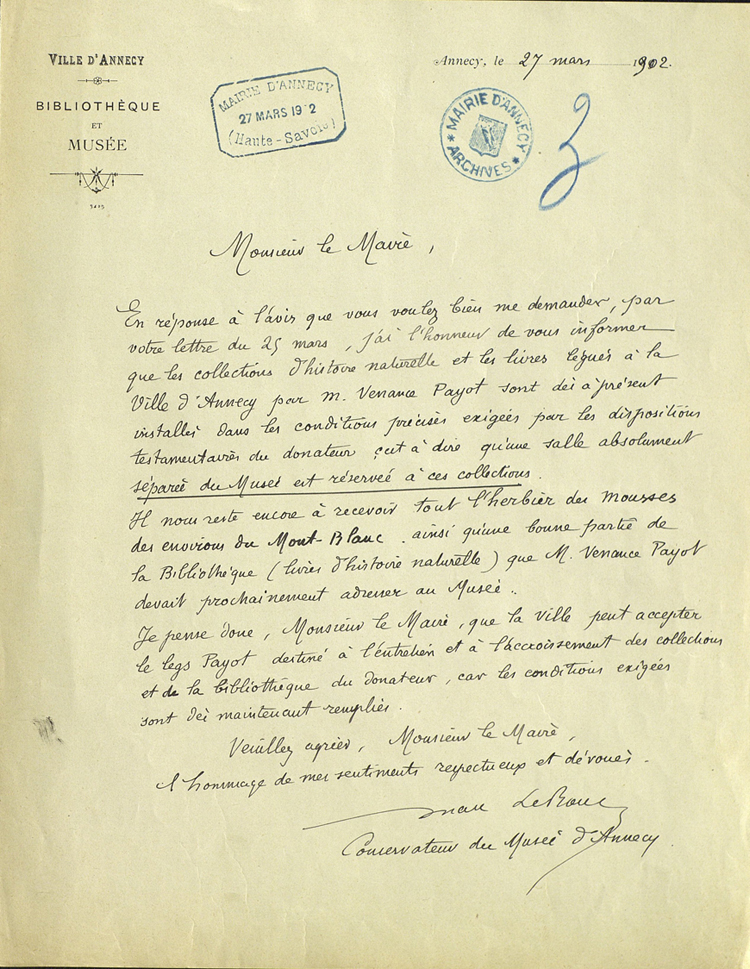 VILLE D'ANNECY
BIBLIOTHÈQUE
ET
MUSÉE
MAIRIE D'ANNECY
27 MARS 19 2
(Haute-Savoie)
Annecy, le 27 mars 1902.
MAIRIE D'ANNECY
ARCHIVES
Monsieur le Mairé,
En réponse à l'avis que vous voulez bien me demander, par
votre lettre du 25 mars, j'ai l'honneur de vous informer
que les collections d'histoire naturelle et les livres légués à la
Ville d'Annecy par M. Venance Payot sont dès à présent
installés dans les conditions précises exigées par les dispositions
testamentaires du donateur c'est à dire qu'une salle absolument
séparée du Museé est réserveé à ces collections.
Il nous reste encore à recevoir tout l'herbier des mousses
des environs du Mont-Blanc. ainsi qu'une bonne partie de
la Bibliothèque (livres d'histoire naturelle) que M. Venance Payot
devait prochainement adresser au Museé.
Je pense donc, Monsieur le Mairé, que la ville peut accepter
le legs Payot destiné à l'entretien et à l'accroissement des collections
et de la bibliothèque du donateur, car les conditions exigées
sont dès maintenant remplies.
Veuillez agréer, Monsieur le Mairé,
l'hommage de mes sentiments respectueux et dévoués.
Marc Le Roux
Conservateur du Museé d'Annecy